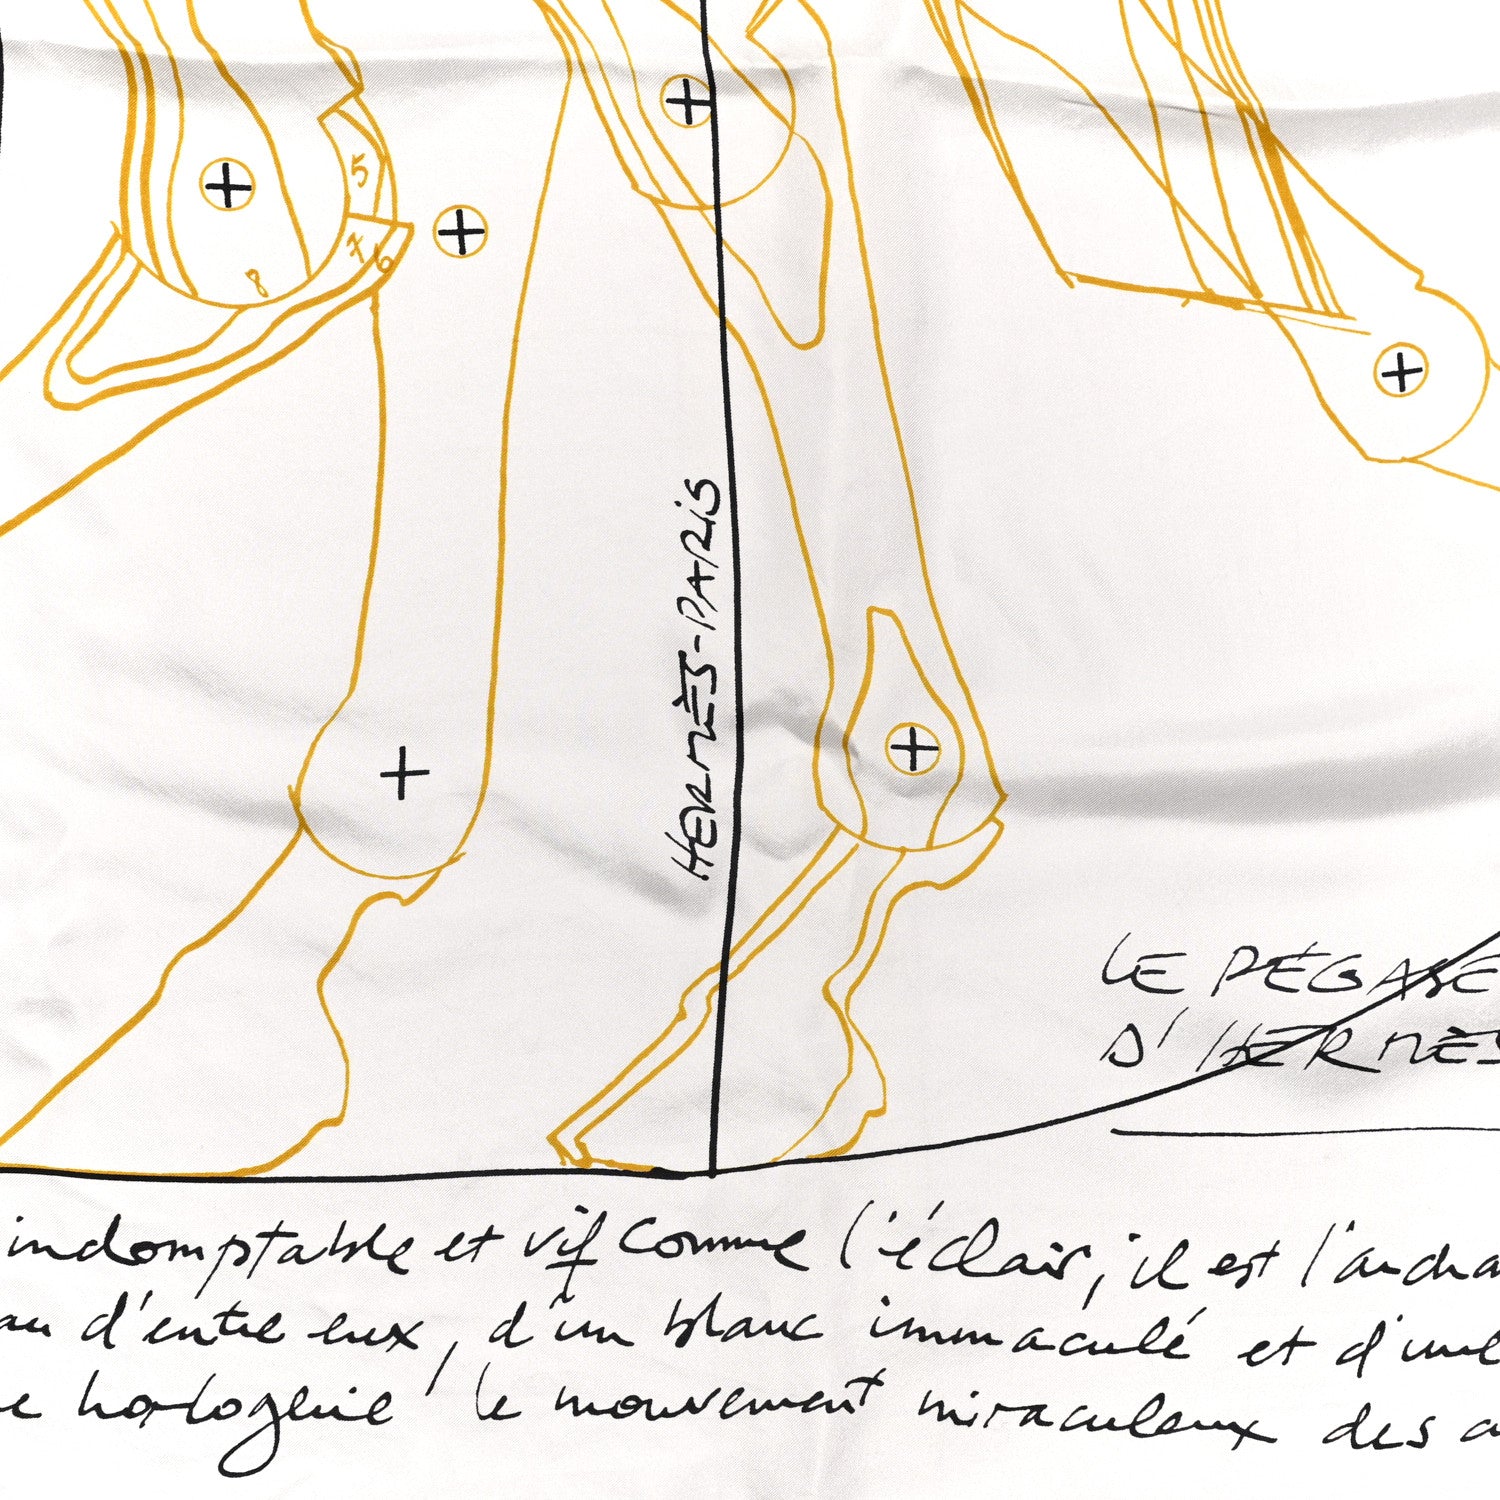 5
7 6
8
HERMÈS-PARIS
LE PÉGASE
D'HERMÈS
indomptable et vif comme l'éclair, il est
d'entre eux, d'un blanc immaculé et d'une
horlogerie le mouvement miraculeux des